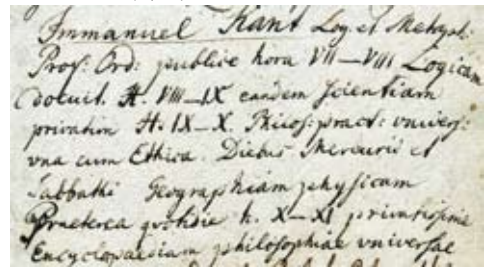 Immanuel Kant Log. et Metaph:
Prof: Ord: publice hora VII—VIII Logicam
docuit. H. VIII—IX eandem scientiam
privatim H. IX—X. Philos: pract: univers:
vna cum Ethica. Diebus Mercurii et
Sabbathi Geographiam physicam
Praeterea qvotidie h. X—XI privatissime
Encyclopaediam philosophiae vniversae